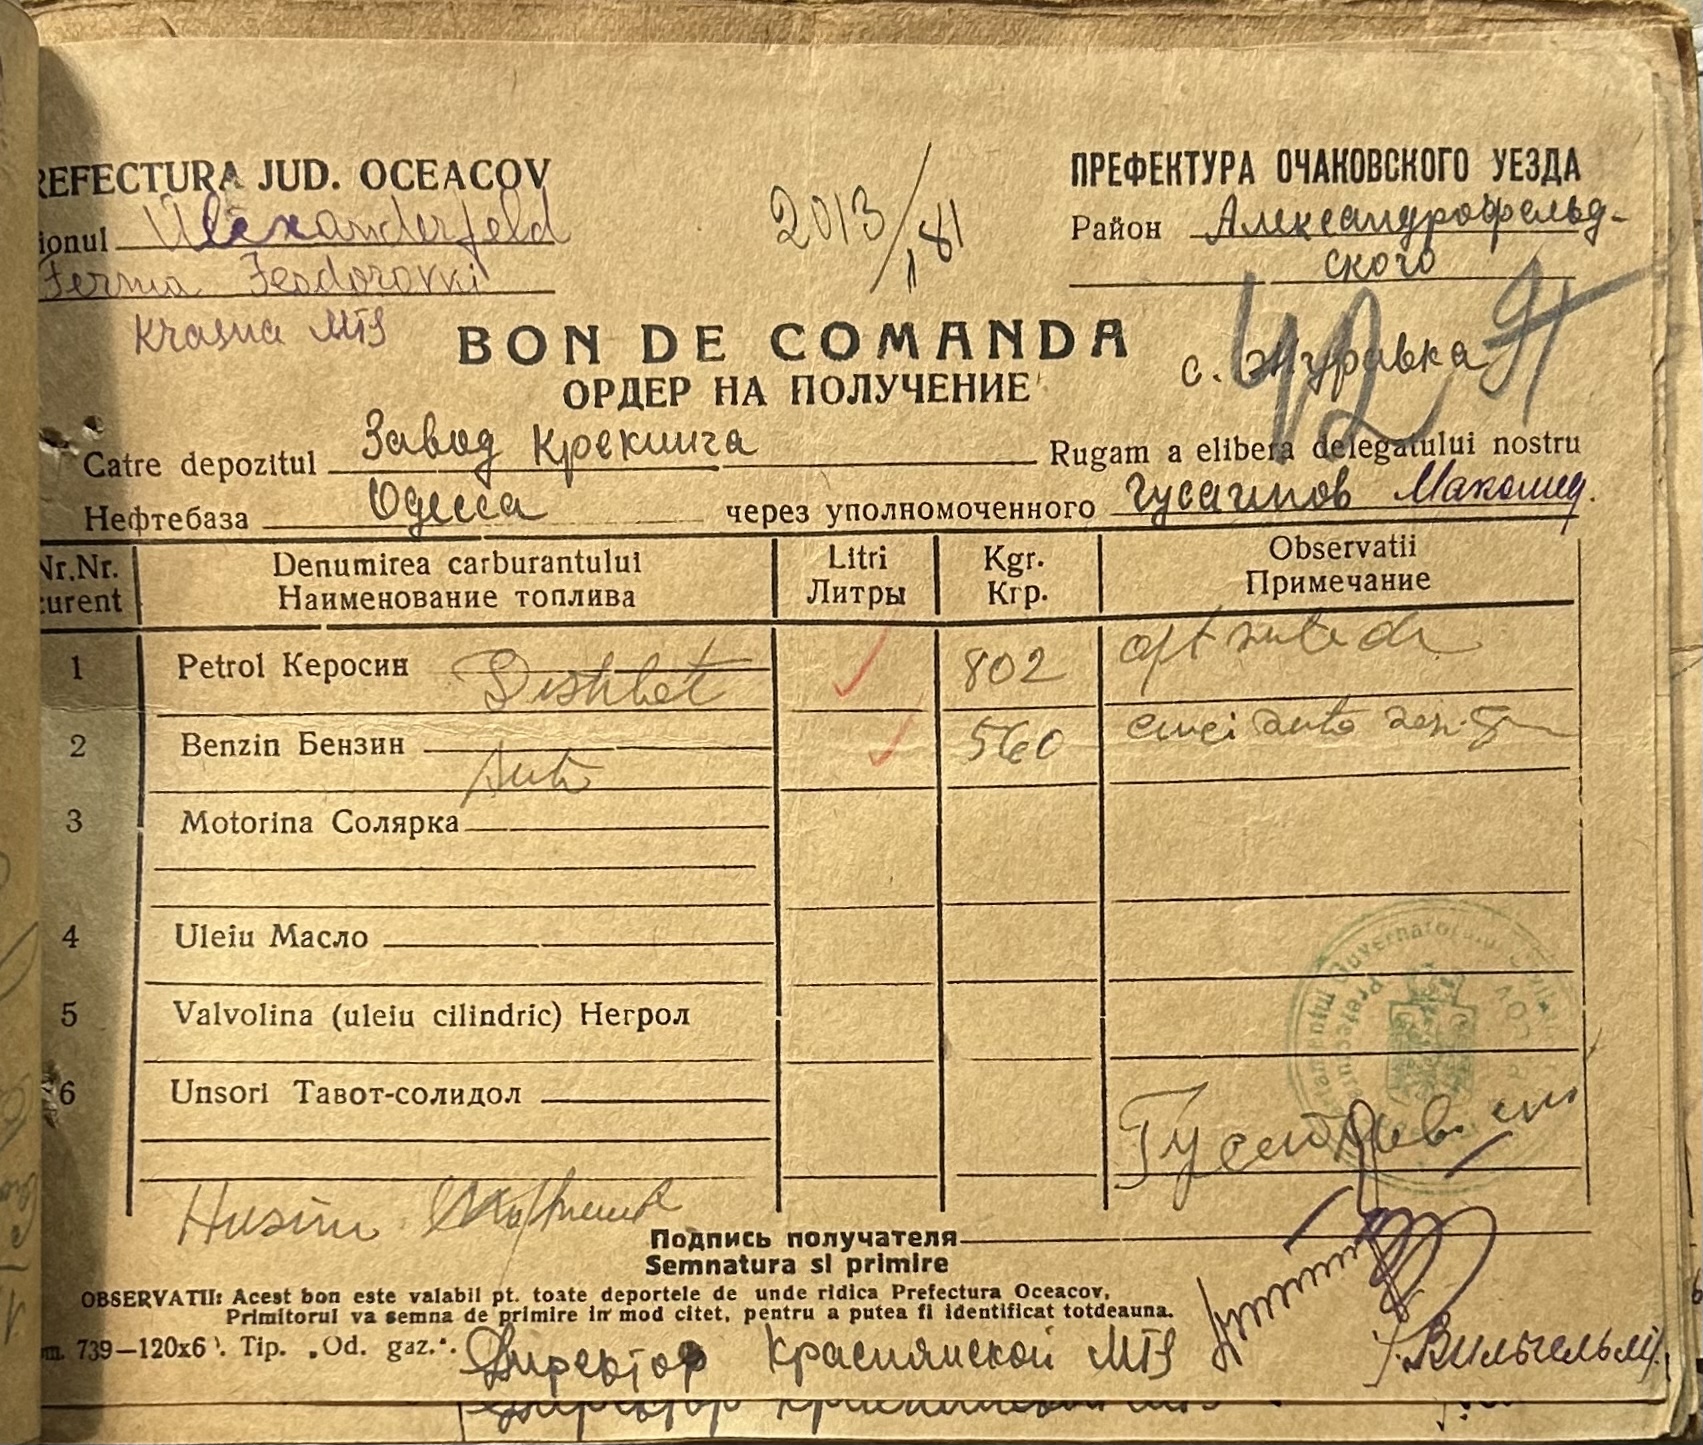 REFECTURA JUD. OCEACOV
ПРЕФЕКТУРА ОЧАКОВСКОГО УЕЗДА
ionul Alexanderfeld
2013/
Район Александрофельд-
ского
Ferma Feodorovki
Krasna MTS
BON DE COMANDA
с. Журавка
ОРДЕР НА ПОЛУЧЕНИЕ
42
Catre depozitul Завод Крекинга Rugam a elibera delegatului nostru
Нефтебаза Одесса через уполномоченного Гусаинов
Nr.Nr. Denumirea carburantului Litri Kgr. Observatii
curent Наименование топлива Литры Кгр. Примечание
1 Petrol Керосин 802 opt sute doi
2 Benzin Бензин 560 cinci sute
Auto
3 Motorina Солярка
4 Uleiu Масло
5 Valvolina (uleiu cilindric) Негрол
6 Unsori Тавот-солидол
Husein
Подпись получателя
Semnatura si primire
OBSERVATII: Acest bon este valabil pt. toate deportele de unde ridica Prefectura Oceacov,
Primitorul va semna de primire in mod citet, pentru a putea fi identificat totdeauna.
739—120x6 . Tip. „Od. gaz.“.
Директор Краснянской МТS
Вильгельм